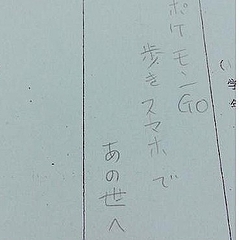 ポケモンGO
歩きスマホで
あの世へ